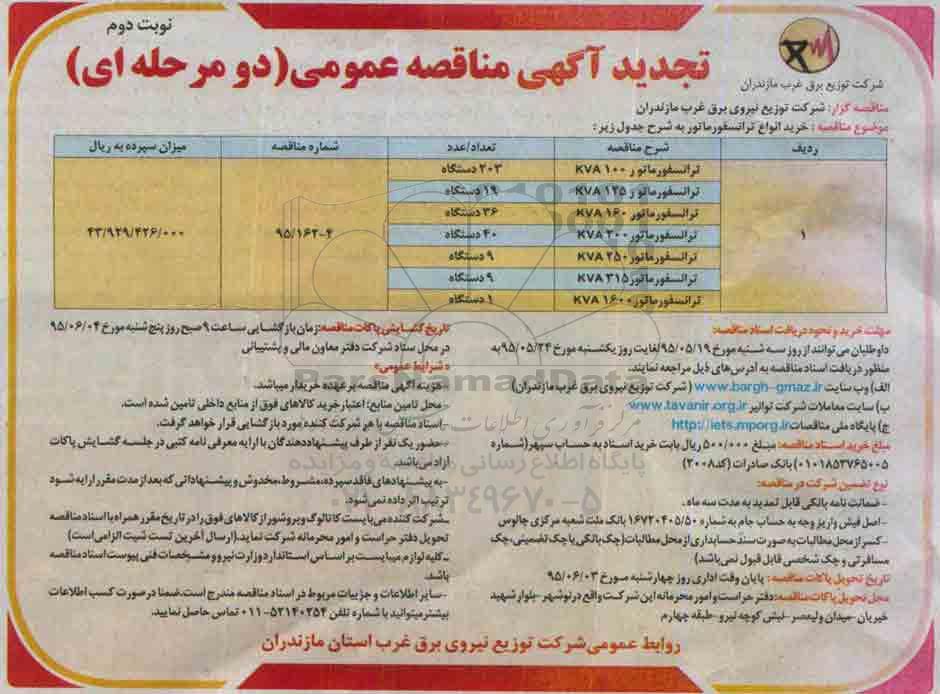 نوبت دوم
تجدید آگهی مناقصه عمومی (دو مرحله ای)
شرکت توزیع برق غرب مازندران
مناقصه گزار: شرکت توزیع نیروی برق غرب مازندران
موضوع مناقصه: خرید انواع ترانسفورماتور به شرح جدول زیر:
ردیف شرح مناقصه تعداد/عدد شماره مناقصه میزان سپرده به ریال
ترانسفورماتور ۱۰۰ KVA ۲۰۳ دستگاه
ترانسفورماتور ۱۲۵ KVA ۱۹ دستگاه
ترانسفورماتور ۱۶۰ KVA ۳۶ دستگاه
۱ ترانسفورماتور ۲۰۰ KVA ۴۰ دستگاه ۹۵/۱۶۲-۴ ۴۳/۹۲۹/۴۲۶/۰۰۰
ترانسفورماتور ۲۵۰ KVA ۹ دستگاه
ترانسفورماتور ۳۱۵ KVA ۹ دستگاه
ترانسفورماتور ۱۶۰۰ KVA ۱ دستگاه
مهلت خرید و نحوه دریافت اسناد مناقصه:
داوطلبان می توانند از روز سه شنبه مورخ ۹۵/۰۵/۱۹ لغایت روز یکشنبه مورخ ۹۵/۰۵/۲۴ به
منظور دریافت اسناد مناقصه به آدرس های ذیل مراجعه نمایند.
الف) وب سایت www.bargh-gmaz.ir (شرکت توزیع نیروی برق غرب مازندران)
ب) سایت معاملات شرکت توانیر www.tavanir.org.ir
ج) پایگاه ملی مناقصات http://iets.mporg.ir
مبلغ خرید اسناد مناقصه: مبلغ ۵۰۰/۰۰۰ ریال بابت خرید اسناد به حساب سپهر (شماره
۰۱۰۱۸۵۳۷۶۵۰۰۵) بانک صادرات (کد ۲۰۰۸)
نوع تضمین شرکت در مناقصه:
- ضمانت نامه بانکی قابل تمدید به مدت سه ماه.
- اصل فیش واریز وجه به حساب جام به شماره ۱۶۷۲۰۴۰۵/۵۰ بانک ملت شعبه مرکزی چالوس
- کسر از محل مطالبات به صورت سند حسابداری از محل مطالبات (چک بانکی یا چک تضمینی، چک
مسافرتی و چک شخصی قابل قبول نمی باشد)
تاریخ تحویل پاکات مناقصه: پایان وقت اداری روز چهارشنبه مورخ ۹۵/۰۶/۰۳
محل تحویل پاکات مناقصه: دفتر حراست و امور محرمانه این شرکت واقع در نوشهر - بلوار شهید
خیریان - میدان ولیعصر - نبش کوچه نیرو - طبقه چهارم
تاریخ گشایش پاکات مناقصه: زمان بازگشایی ساعت ۹ صبح روز پنج شنبه مورخ ۹۵/۰۶/۰۴
در محل ستاد شرکت دفتر معاون مالی و پشتیبانی
«شرایط عمومی»
- هزینه آگهی مناقصه بر عهده خریدار میباشد.
- محل تامین منابع: اعتبار خرید کالاهای فوق از منابع داخلی تامین شده است.
- اسناد مناقصه با هر شرکت کننده مورد بازگشایی قرار خواهد گرفت.
- حضور یک نفر از طرف پیشنهاددهندگان با ارایه معرفی نامه کتبی در جلسه گشایش پاکات
آزاد می باشد.
- به پیشنهادهای فاقد سپرده، مشروط، مخدوش و پیشنهاداتی که بعد از مدت مقرر ارایه شود
ترتیب اثر داده نمی شود.
- شرکت کننده می بایست کاتالوگ و بروشور از کالاهای فوق را در تاریخ مقرر همراه با اسناد مناقصه
تحویل دفتر حراست و امور محرمانه شرکت نماید. (ارسال آخرین تست شیت الزامی است)
- کلیه لوازم میبایست بر اساس استاندارد وزارت نیرو و مشخصات فنی پیوست اسناد مناقصه
باشد.
- سایر اطلاعات و جزییات مربوط در اسناد مناقصه مندرج است. ضمنا در صورت کسب اطلاعات
بیشتر میتوانید با شماره تلفن ۵۲۱۴۰۲۵۴-۰۱۱ تماس حاصل نمایید.
روابط عمومی شرکت توزیع نیروی برق غرب استان مازندران